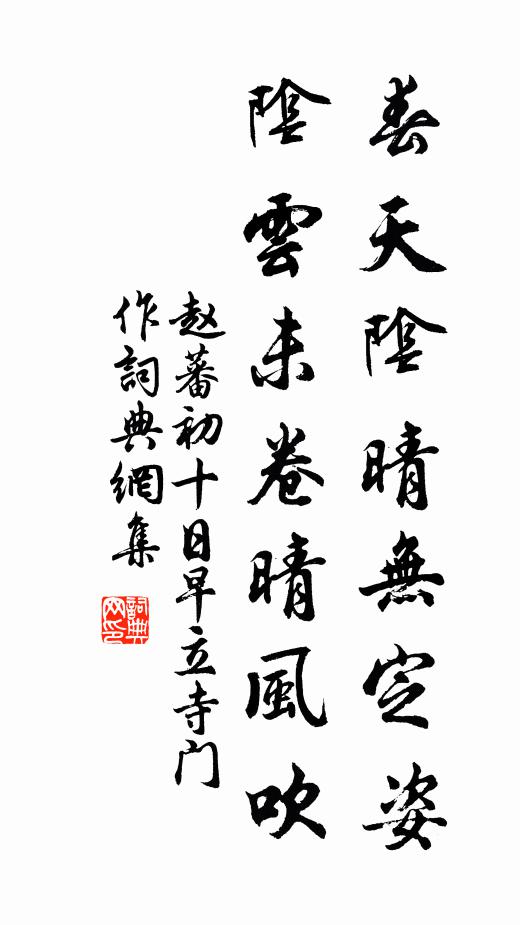 春天陰晴無定姿
陰雲未卷晴風吹
赵蕃初十日早立寺门
作詞典網集
詞典网印